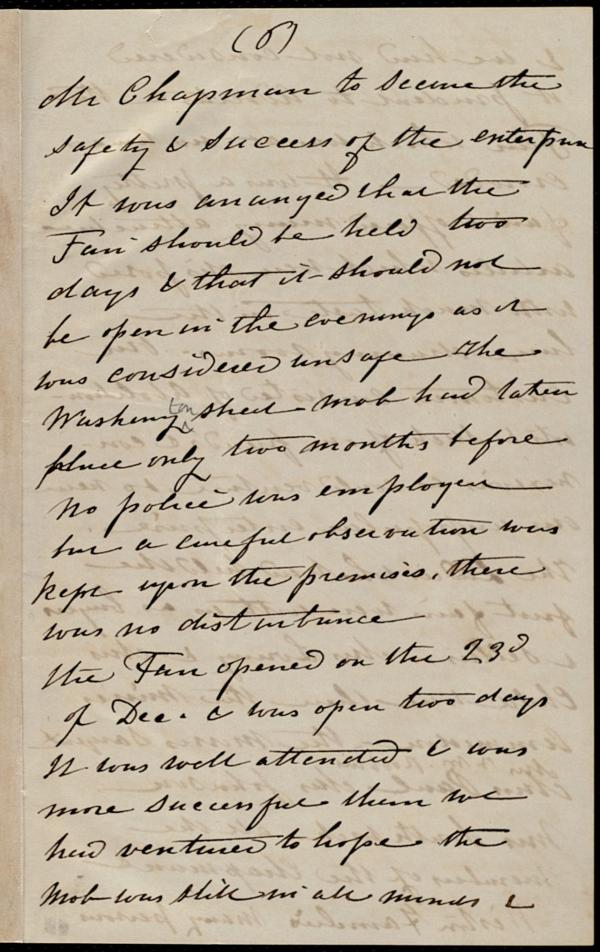 (6)
Mr Chapman to secure the
safety & success of the enterprise
It was arranged that the
Fair should be held two
days & that it should not
be open in the evenings as it
was considered unsafe the
Washington street mob had taken
place only two months before
No police was employed
but a careful observation was
kept upon the premises, there
was no disturbance
the Fair opened on the 23d
of Dec. & was open two days
It was well attended & was
more successful than we
had ventured to hope the
Mob was still in all minds &